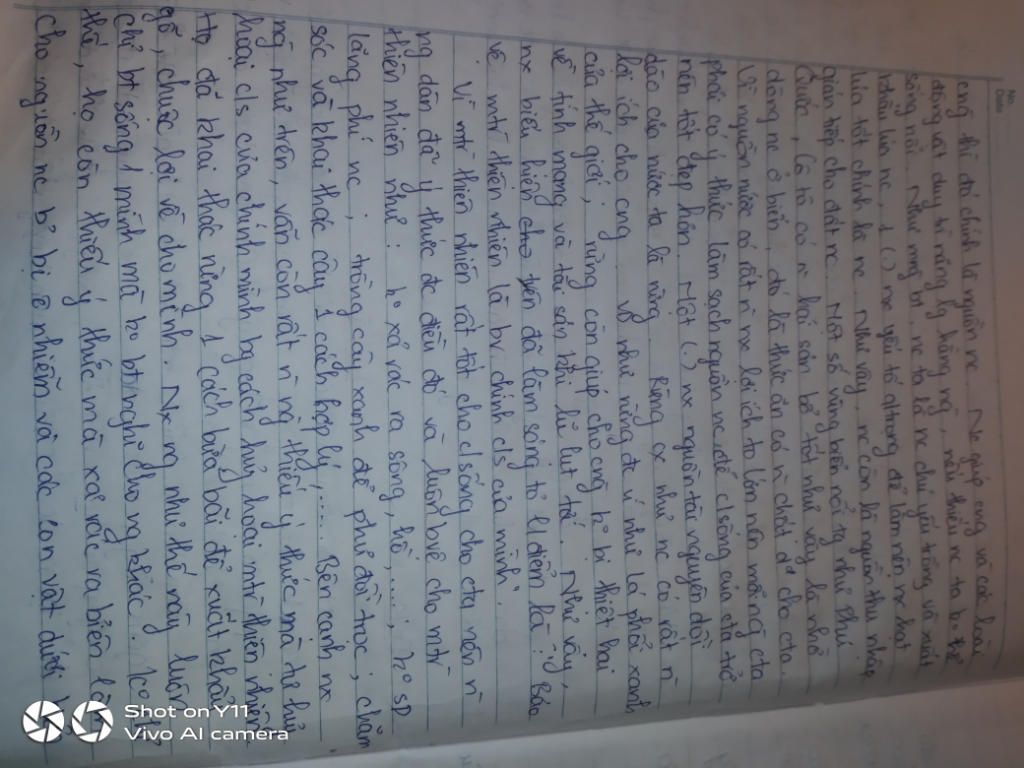 No.
Date
cng thì đó chính là nguồn nc. Nc giúp cng và các loài
động vật duy trì năng lg hàng ng, nếu thiếu nc ta ko thể
sống nổi. Như mng bt, nc ta là nc chủ yếu trồng và xuất
khẩu lúa nc, 1 (.) nx yếu tố qtrong để làm nên nx hạt
lúa tốt chính là nc. Như vậy, nc còn là nguồn thu nhập
gián tiếp cho đất nc. Một số vùng biển nổi tg như Phú
Quốc, Cô tô có n hải sản bổ tốt như vậy là nhờ
dòng nc ở biển, đó là thức ăn có n chất d² cho cta.
Vì nguồn nước có rất n nx lợi ích to lớn nên mỗi ng cta
phải có ý thức làm sạch nguồn nc để c/sống của cta trở
nên tốt đẹp hơn. Một (.) nx nguồn tài nguyên dồi
dào của nước ta là rừng. Rừng cx như nc có rất n
lợi ích cho cng. Vd như rừng đc ví như lá phổi xanh
của thế giới; rừng còn giúp cho cng ko bị thiệt hại
về tính mạng và tài sản khi lũ lụt tới. Như vậy,
nx biểu hiện trên đã làm sáng tỏ l/điểm là: "Bảo
vệ mtr thiên nhiên là bv chính c/s của mình".
Vì mtr thiên nhiên rất tốt cho c/sống cho cta nên n
ng dân đã ý thức đc điều đó và luôn bvệ cho mtr
thiên nhiên như: ko xả rác ra sông, hồ,....; ko sd
lãng phí nc; trồng cây xanh để phủ đồi trọc; chăm
sóc và khai thác cây 1 cách hợp lý;.... Bên cạnh nx
ng như trên, vẫn còn rất n ng thiếu ý thức mà tự hủy
hoại c/s của chính mình bg cách hủy hoại mtr thiên nhiên.
Họ đã khai thác rừng 1 cách bừa bãi để xuất khẩu
gỗ, chuộc lợi về cho mình. Nx ng như thế này luôn
chỉ bt sống 1 mình mà ko bt nghĩ cho ng khác. Ko chỉ
thế, họ còn thiếu ý thức mà xả rác ra biển làm
cho nguồn nc bị ô nhiễm và các con vật dưới
Shot on Y11
Vivo AI camera